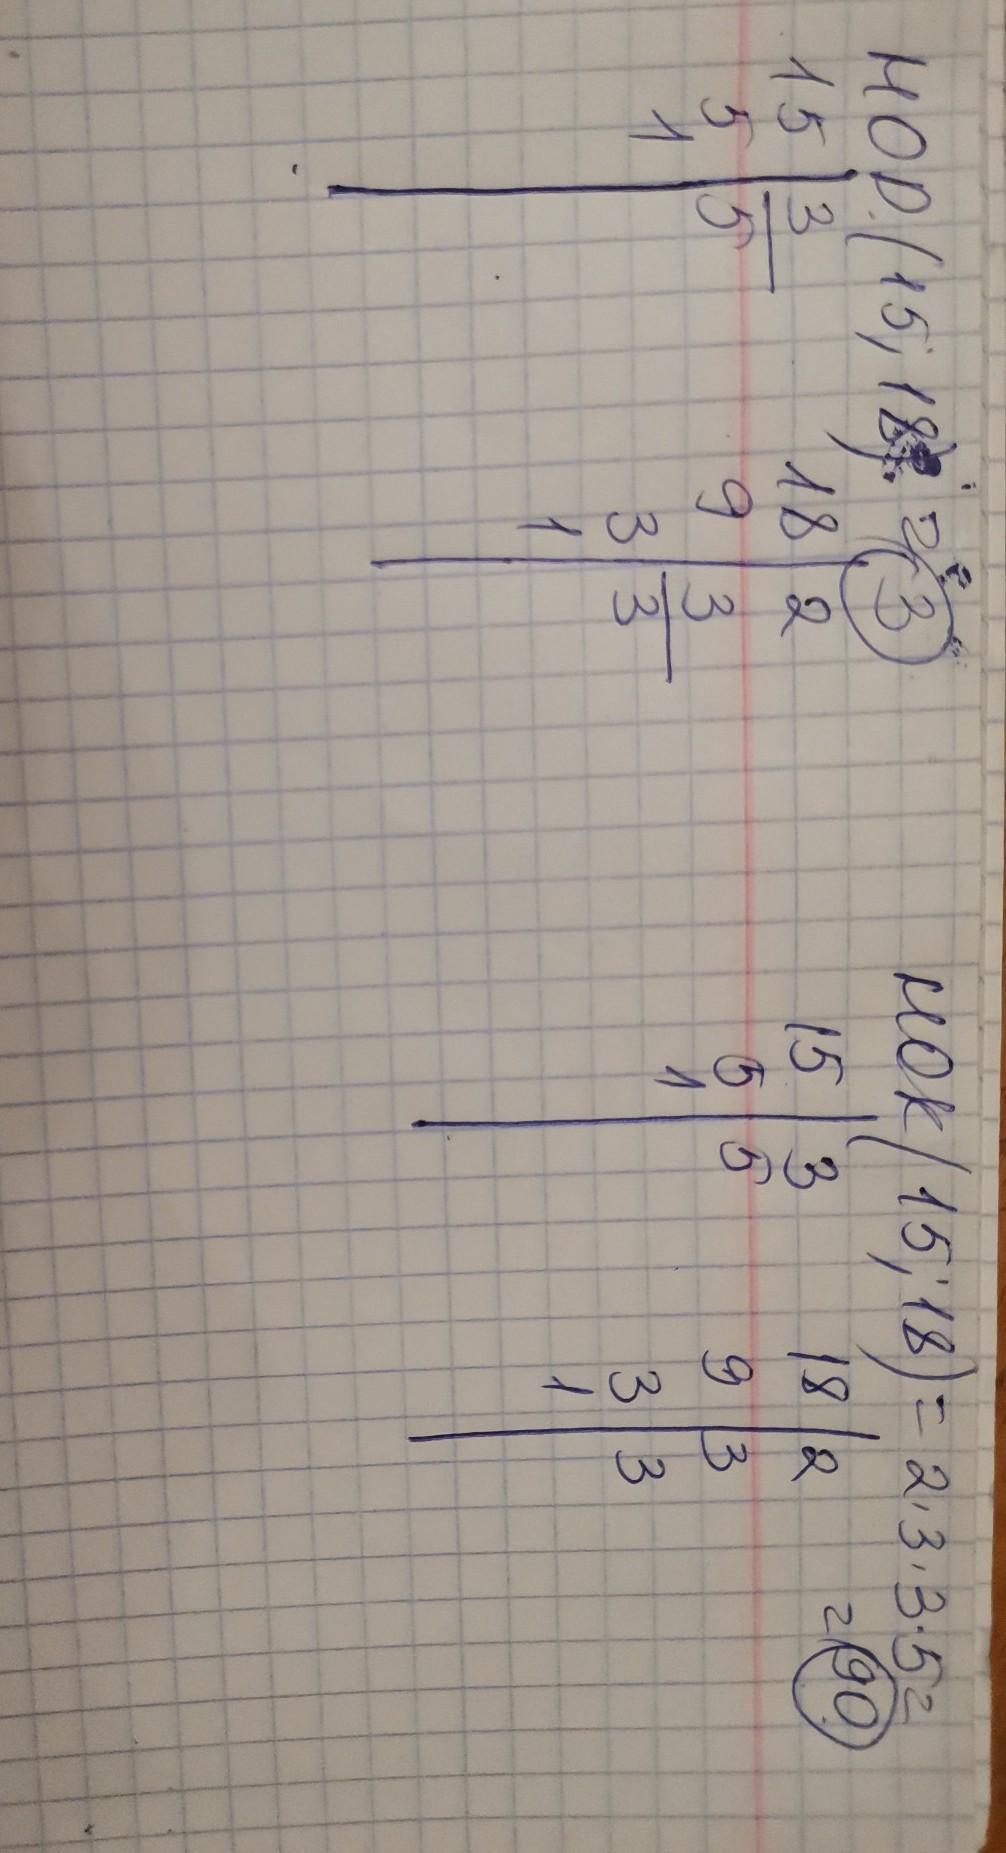 НОД (15; 18) = 3
15 3
5 5
1
18 2
9 3
3 3
1
НОК (15; 18) = 2·3·3·5=
=90
15 3
5 5
1
18 2
9 3
3 3
1